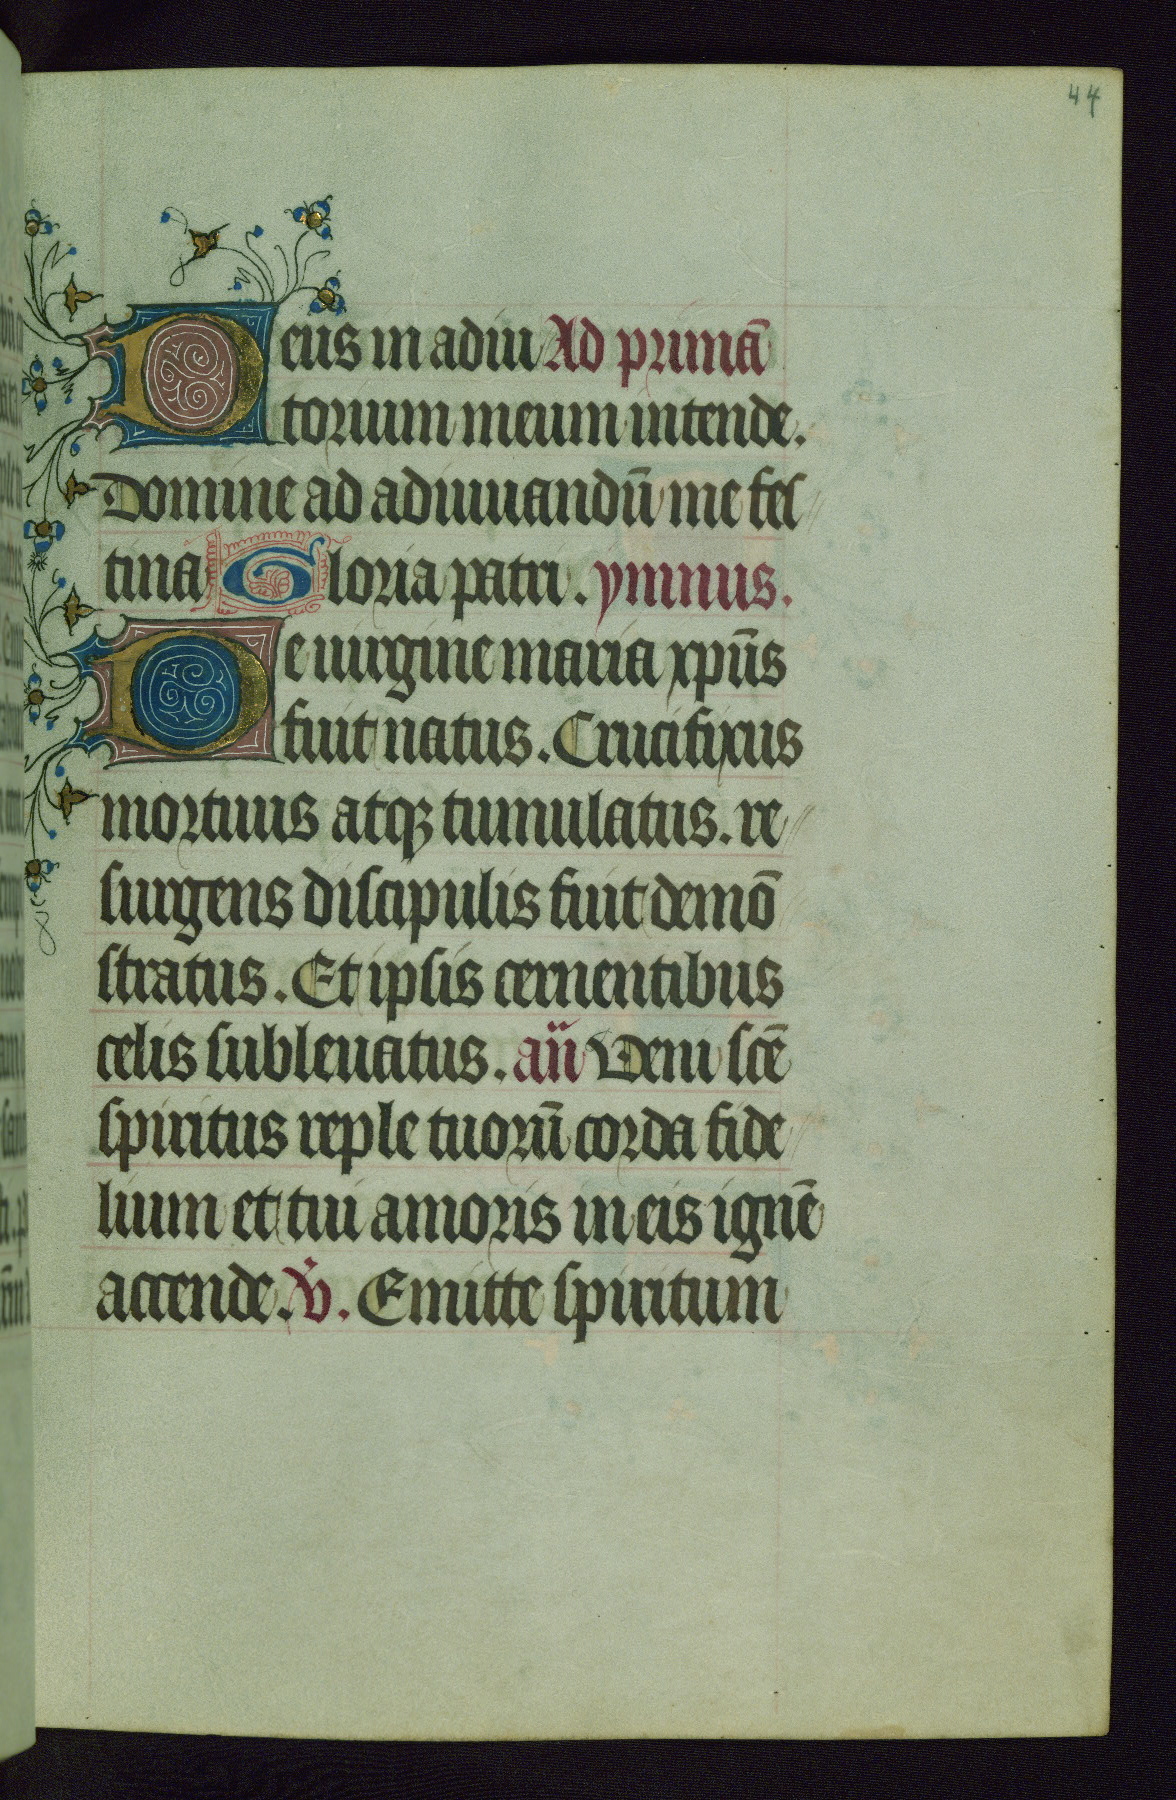 44
Deus in adiu Ad primā
torium meum intende.
Domine ad adiuuandū me fes
tina Gloria patri. ymnus.
De uirgine maria xpūs
fuit natus. Crucifixus
mortuus atqꝫ tumulatus. re
surgens discipulis fuit demō
stratus. Et ipsis cernentibus
celis subleuatus. an̄ Veni scē
spiritus reple tuorū corda fide
lium et tui amoris in eis ignē
accende. ℣. Emitte spiritum